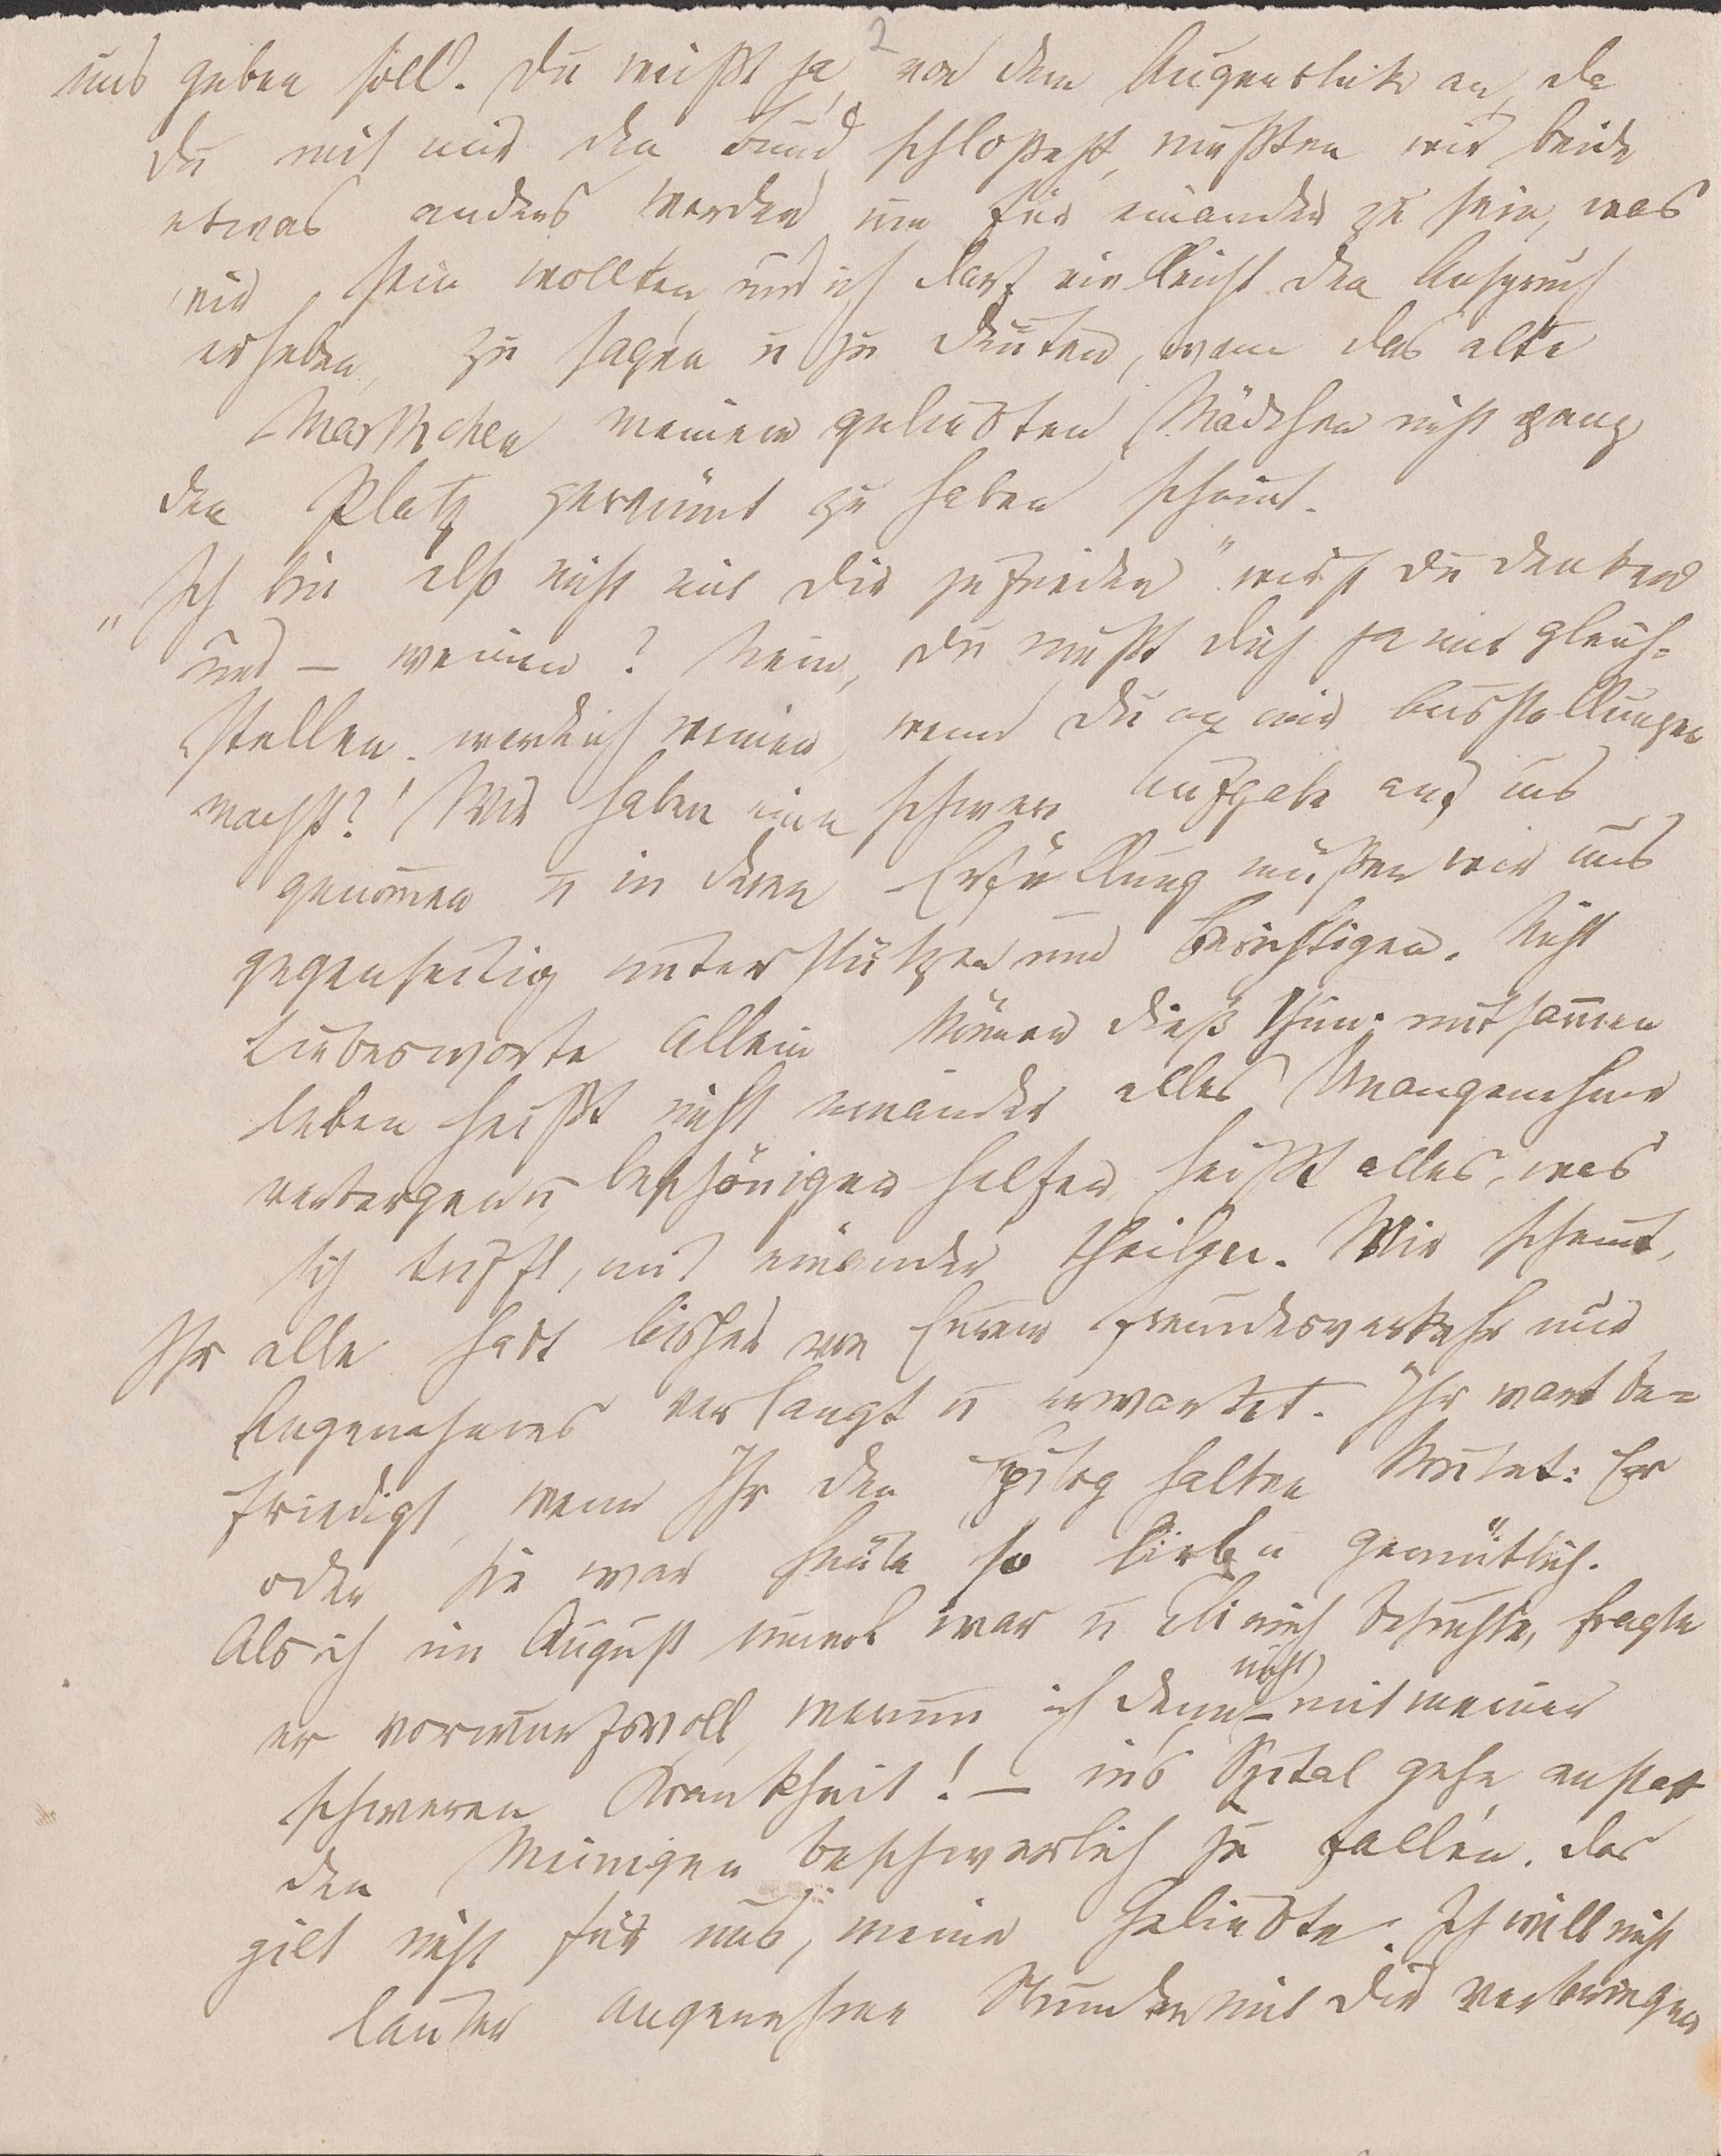 2
uns geben soll. Du weißt ja, von dem Augenblick an, da
Du mit mir den Bund schloßest, mußten wir beide
etwas anders werden um für einander zu sein, was
wir sein wollten und ich darf vielleicht den Anspruch
erheben, zu sagen u zu deuten, wenn das alte
Marthchen meinem geliebten Mädchen nicht ganz
den Platz geräumt zu haben scheint.
„Ich bin also nicht mit Dir zufrieden" wirst Du denken
und – weinen? Nein, Du mußt Dich ja mir gleich-
stellen. werde ich weinen, wenn Du an mir Ausstellungen
machst? Wir haben eine schwere Aufgabe auf uns
genom̄en u in deren Erfüllung müßen wir uns
gegenseitig unterstützen und berichtigen. Nicht
Liebesworte allein können dieß thun; mitsam̄en
leben heißt nicht einander alles Unangenehme
verbergen u beschönigen helfen, heißt alles, was
sich trifft, mit einander theilen. Mir scheint,
Ihr alle habt bisher von Eurem Freundesverkehr nur
Angenehmes verlangt u erwartet. Ihr wart be-
friedigt, wenn Ihr den Epilog halten konntet: Er
oder sie war heute so lieb u gemütlich.
Als ich im August unwol war u Eli mich besuchte, fragte
er vorwurfsvoll, warum ich denn nicht – mit meiner
schweren Krankheit! – ins Spital gehe anstatt
den Meinigen beschwerlich zu fallen. Das
gilt nicht für uns, meine Geliebte. Ich will nicht
lauter angenehme Stunden mit Dir verbringen